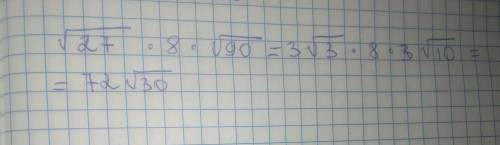 √27 · 8 · √90 = 3√3 · 8 · 3√10 =
= 72√30